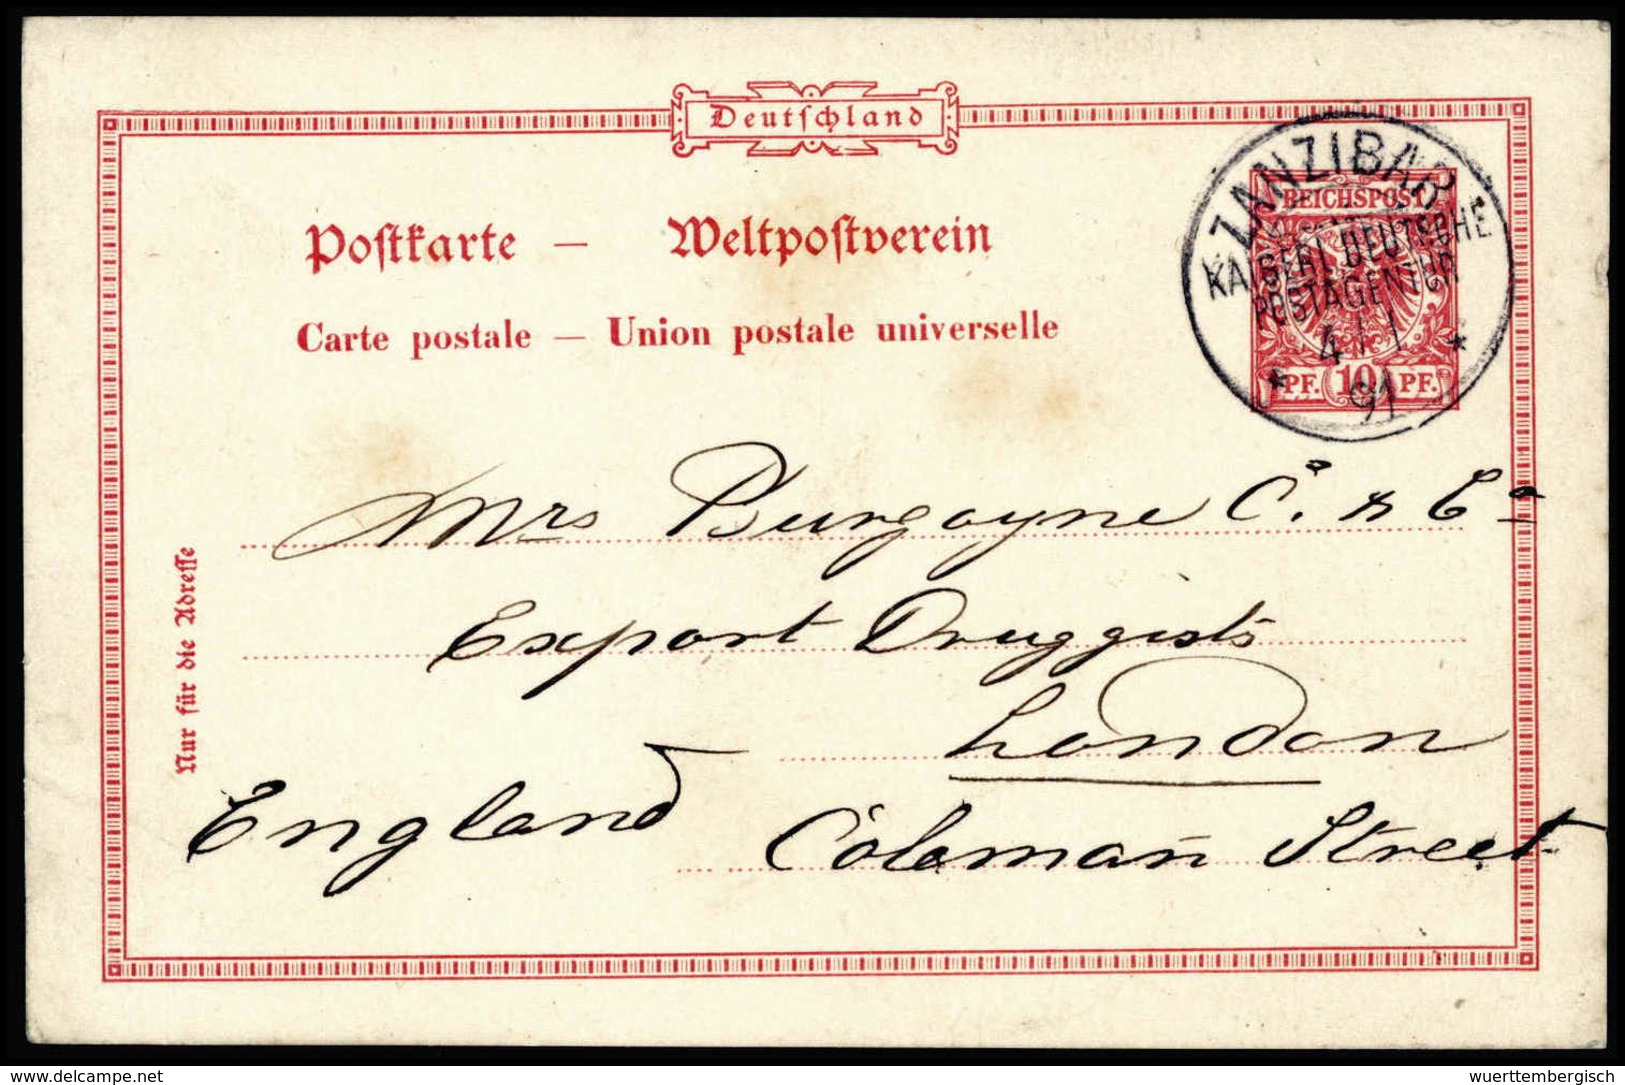 Deutschland
Postkarte — Weltpostverein
Carte postale — Union postale universelle
ZANZIBAR
KAISERL. DEUTSCHE
POSTAGENTUR
4 / 1
91
* *
REICHSPOST
PF. 10 PF.
Nur für die Adresse
Mrs Burgoyne C. & Co
Export Druggists
London
England
Coleman Street
www.delcampe.net
wuerttembergisch